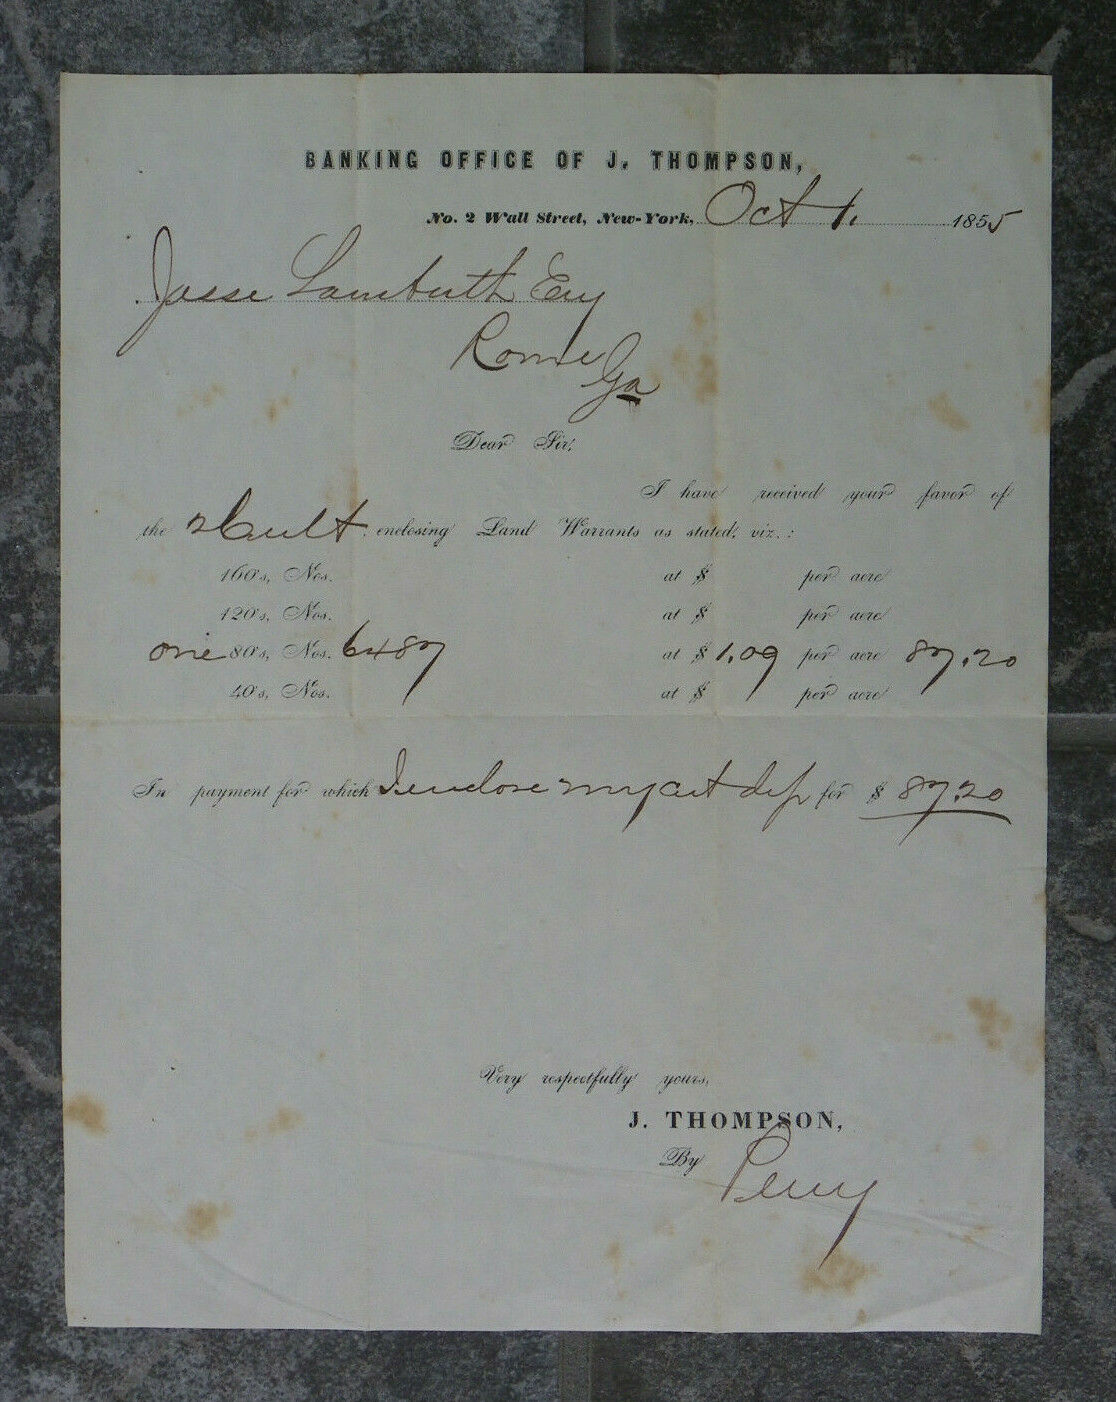 BANKING OFFICE OF J. THOMPSON,
No. 2 Wall Street, New-York, Oct 1. 1855
Jesse Lamberth Esq
Rome Ga
Dear Sir;
I have received your favor of
the ult. enclosing Land Warrants as stated, viz.:
160's, Nos. at $ per acre
120's, Nos. at $ per acre
one 80's, Nos. 6487 at $ 1.09 per acre 87.20
40's, Nos. at $ per acre
In payment for which I enclose my for $ 87.20
Very respectfully yours,
J. THOMPSON,
By Perry